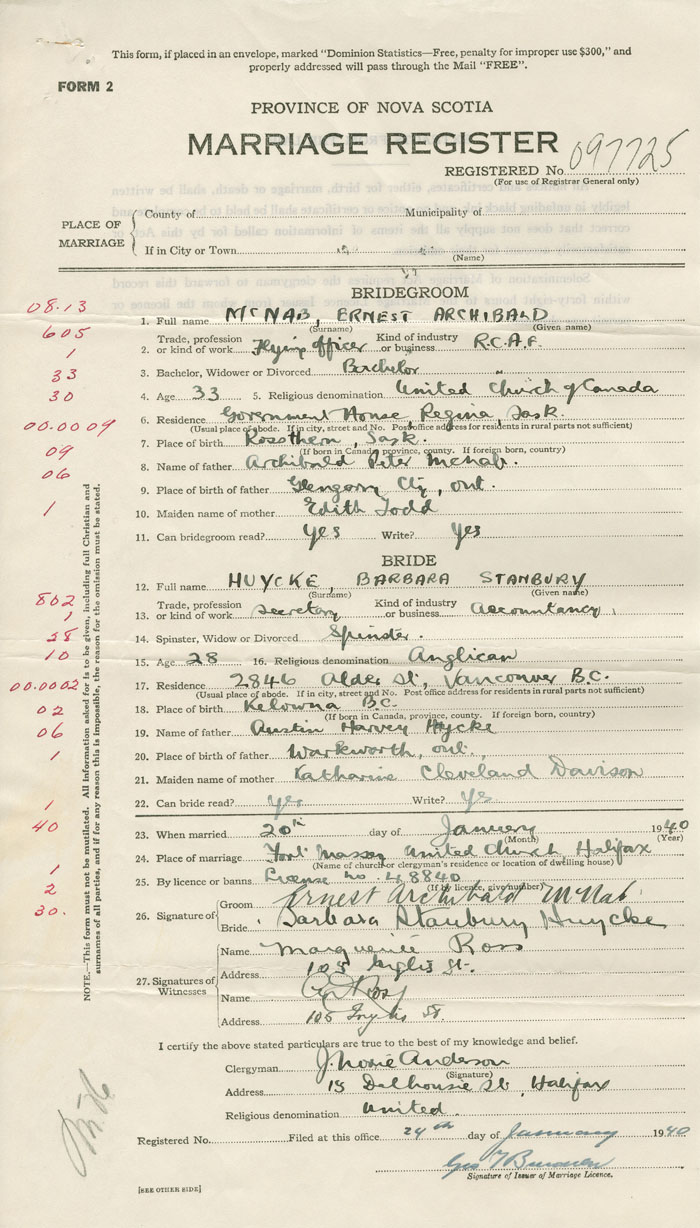 This form, if placed in an envelope, marked "Dominion Statistics—Free, penalty for improper use $300," and
properly addressed will pass through the Mail "FREE".
FORM 2
PROVINCE OF NOVA SCOTIA
MARRIAGE REGISTER
REGISTERED No. 097725
(For use of Registrar General only)
PLACE OF MARRIAGE
County of
Municipality of
If in City or Town
(Name)
BRIDEGROOM
08.13
1. Full name McNAB, ERNEST ARCHIBALD
(Surname) (Given name)
605
2. Trade, profession or kind of work Flying Officer Kind of industry or business R.C.A.F.
1
3. Bachelor, Widower or Divorced Bachelor
33
4. Age 33 5. Religious denomination United Church of Canada
30
6. Residence Government House Regina, Sask.
(Usual place of abode. If in city, street and No. Post office address for residents in rural parts not sufficient)
00.0009
7. Place of birth Rosthern, Sask.
(If born in Canada, province, county. If foreign born, country)
09
8. Name of father Archibald Peter McNab.
06
9. Place of birth of father Glengarry Cty, Ont.
1
10. Maiden name of mother Edith Todd
11. Can bridegroom read? Yes Write? Yes
BRIDE
12. Full name HUYCKE, BARBARA STANBURY
(Surname) (Given name)
802
13. Trade, profession or kind of work Secretary Kind of industry or business Accountancy
1
14. Spinster, Widow or Divorced Spinster.
28
15. Age 28 16. Religious denomination Anglican
10
17. Residence 2846 Alder St., Vancouver B.C.
(Usual place of abode. If in city, street and No. Post office address for residents in rural parts not sufficient)
00.0002
18. Place of birth Kelowna B.C.
(If born in Canada, province, county. If foreign born, country)
02
19. Name of father Austin Harvey Hycke
06
20. Place of birth of father Warkworth, Ont.
1
21. Maiden name of mother Katharine Cleveland Davison
22. Can bride read? Yes Write? Yes
1
23. When married 20th day of January 1940
(Month) (Year)
40
24. Place of marriage Fort Massey United Church, Halifax
(Name of church or clergyman's residence or location of dwelling house)
1
25. By licence or banns License No. 48840
(If by licence, give number)
2
30.
26. Signature of
Groom Ernest Archibald McNab
Bride Barbara Stanbury Huycke
27. Signatures of Witnesses
Name Marguerite Ross
Address 105 Inglis St.
Name Ross
Address 105 Inglis St
NOTE.—This form must not be mutilated. All information asked for is to be given, including full Christian and
surnames of all parties, and if for any reason this is impossible, the reason for the omission must be stated.
I certify the above stated particulars are true to the best of my knowledge and belief.
Clergyman J. Norrie Anderson
(Signature)
Address 18 Dalhousie St, Halifax
Religious denomination United.
Registered No. Filed at this office 24th day of January 1940
Signature of Issuer of Marriage Licence.
[SEE OTHER SIDE]